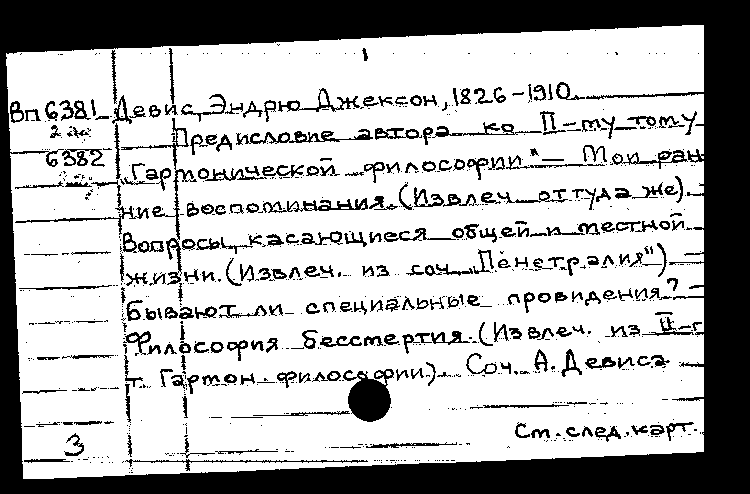 Вп 6381 Девис, Эндрю Джексон, 1826-1910.
2 экз
Предисловие автора ко II-му тому
6382
„Гармонической философии" — Мои ран
ние воспоминания. (Извлеч. оттуда же). -
Вопросы, касающиеся общей и местной
жизни. (Извлеч. из соч. „Пенетралия") —
Бывают ли специальные провидения? -
Философия бессмертия. (Извлеч. из II-г
т. Гармон. философии). Соч. А. Девиса
См. след. карт.
3